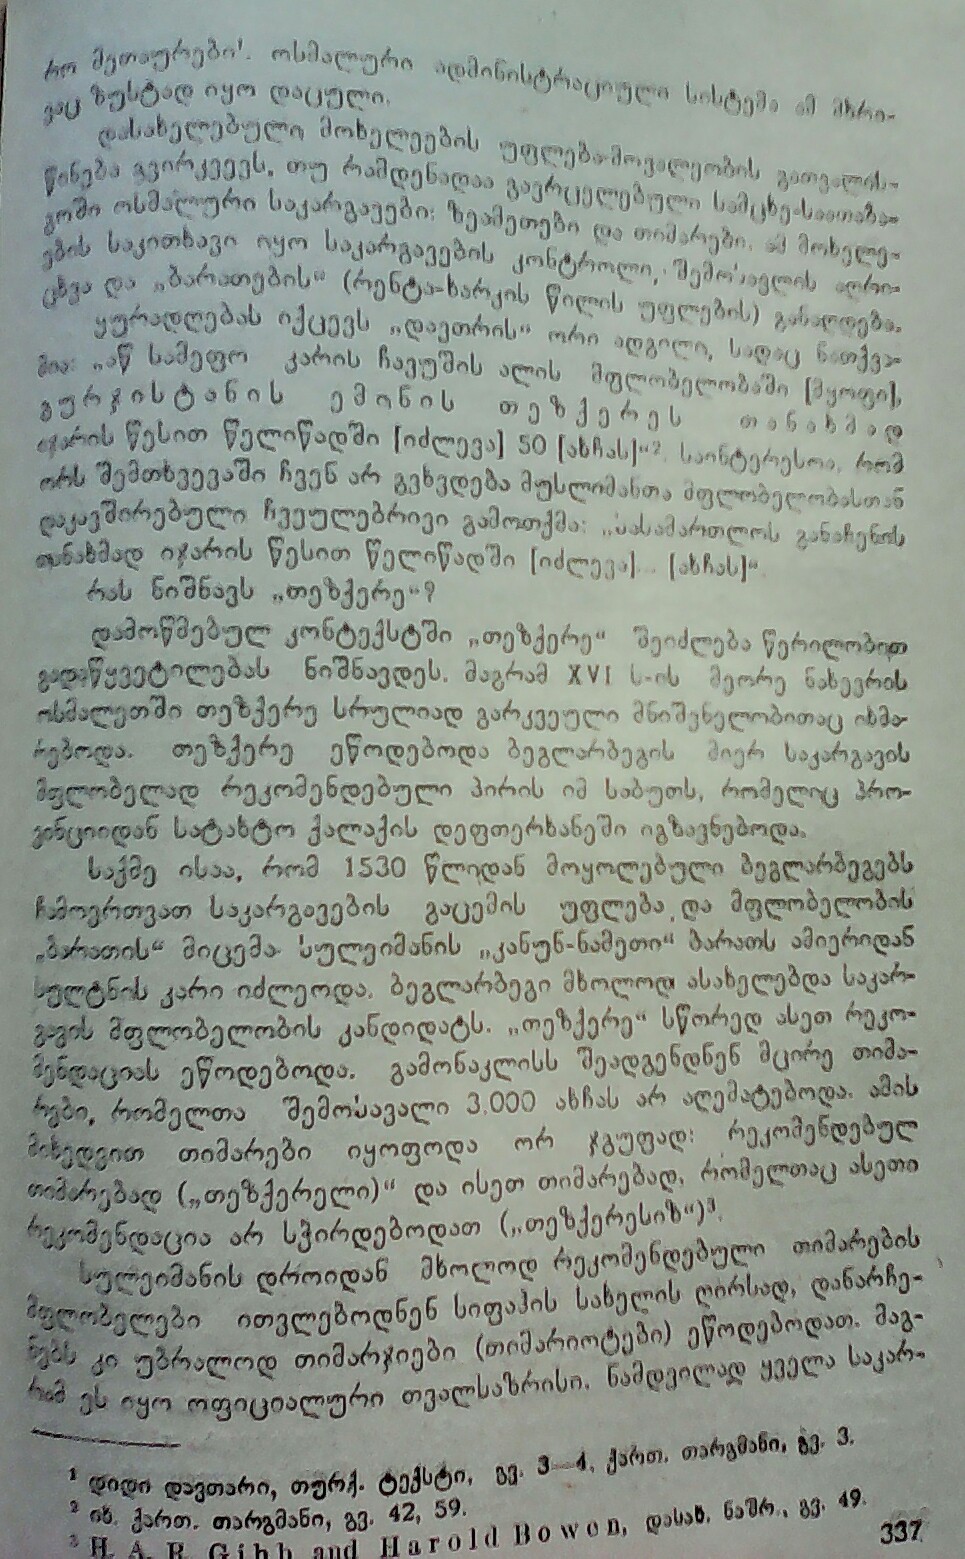 რო მეთაურები¹. ოსმალური ადმინისტრაციული სისტემა ამ მხრი-
ვაც ზუსტად იყო დაცული.
დასახელებული მოხელეების უფლება-მოვალეობის გათვალის-
წინება გვირკვევს, თუ რამდენადაა გავრცელებული სამცხე-საათაბა-
გოში ოსმალური საკარგავები: ზეამეთები და თიმარები. ამ მოხელე-
ების საკითხავი იყო საკარგავების კონტროლი, შემოსავლის აღრი-
ცხვა და „ბარათების“ (რენტა-ხარკის წილის უფლების) განაღდება.
ყურადღებას იქცევს „დავთრის“ ორი ადგილი, სადაც ნათქვა-
მია: „აწ სამეფო კარის ჩავუშის ალის მფლობელობაში [მყოფი],
გურჯისტანის ემინის თეზქერეს თანახმად
იჯარის წესით წელიწადში [იძლევა] 50 [ახჩას]“². საინტერესოა, რომ
ორს შემთხვევაში ჩვენ არ გვხვდება მუსლიმანთა მფლობელობასთან
დაკავშირებული ჩვეულებრივი გამოთქმა: „სასამართლოს განაჩენის
თანახმად იჯარის წესით წელიწადში [იძლევა]... [ახჩას]“
რას ნიშნავს „თეზქერე“?
დამოწმებულ კონტექსტში „თეზქერე“ შეიძლება წერილობით
გადაწყვეტილებას ნიშნავდეს. მაგრამ XVI ს-ის მეორე ნახევრის
ოსმალეთში თეზქერე სრულიად გარკვეული მნიშვნელობითაც იხმა-
რებოდა. თეზქერე ეწოდებოდა ბეგლარბეგის მიერ საკარგავის
მფლობელად რეკომენდებული პირის იმ საბუთს, რომელიც პრო-
ვინციიდან სატახტო ქალაქის დეფთერხანეში იგზავნებოდა.
საქმე ისაა, რომ 1530 წლიდან მოყოლებული ბეგლარბეგებს
ჩამოერთვათ საკარგავების გაცემის უფლება და მფლობელობის
„ბარათის“ მიცემა. სულეიმანის „კანუნ-ნამეთი“ ბარათს ამიერიდან
სულტნის კარი იძლეოდა. ბეგლარბეგი მხოლოდ ასახელებდა საკარ-
გავის მფლობელობის კანდიდატს. „თეზქერე“ სწორედ ასეთ რეკო-
მენდაციას ეწოდებოდა. გამონაკლისს შეადგენდნენ მცირე თიმა-
რები, რომელთა შემოსავალი 3.000 ახჩას არ აღემატებოდა. ამის
მიხედვით თიმარები იყოფოდა ორ ჯგუფად: რეკომენდებულ
თიმარებად („თეზქერელი)“ და ისეთ თიმარებად, რომელთაც ასეთი
რეკომენდაცია არ სჭირდებოდათ („თეზქერესიზ“)³.
სულეიმანის დროიდან მხოლოდ რეკომენდებული თიმარების
მფლობელები ითვლებოდნენ სიფაჰის სახელის ღირსად, დანარჩე-
ნებს კი უბრალოდ თიმარჯიები (თიმარიოტები) ეწოდებოდათ. მაგ-
რამ ეს იყო ოფიციალური თვალსაზრისი. ნამდვილად ყველა საკარ-
¹ დიდი დავთარი, თურქ. ტექსტი, გვ. 3—4, ქართ. თარგმანი, გვ. 3.
² იხ. ქართ. თარგმანი, გვ. 42, 59.
³ H. A. R. Gibb and Harold Bowen, დასახ. ნაშრ., გვ. 49.
337